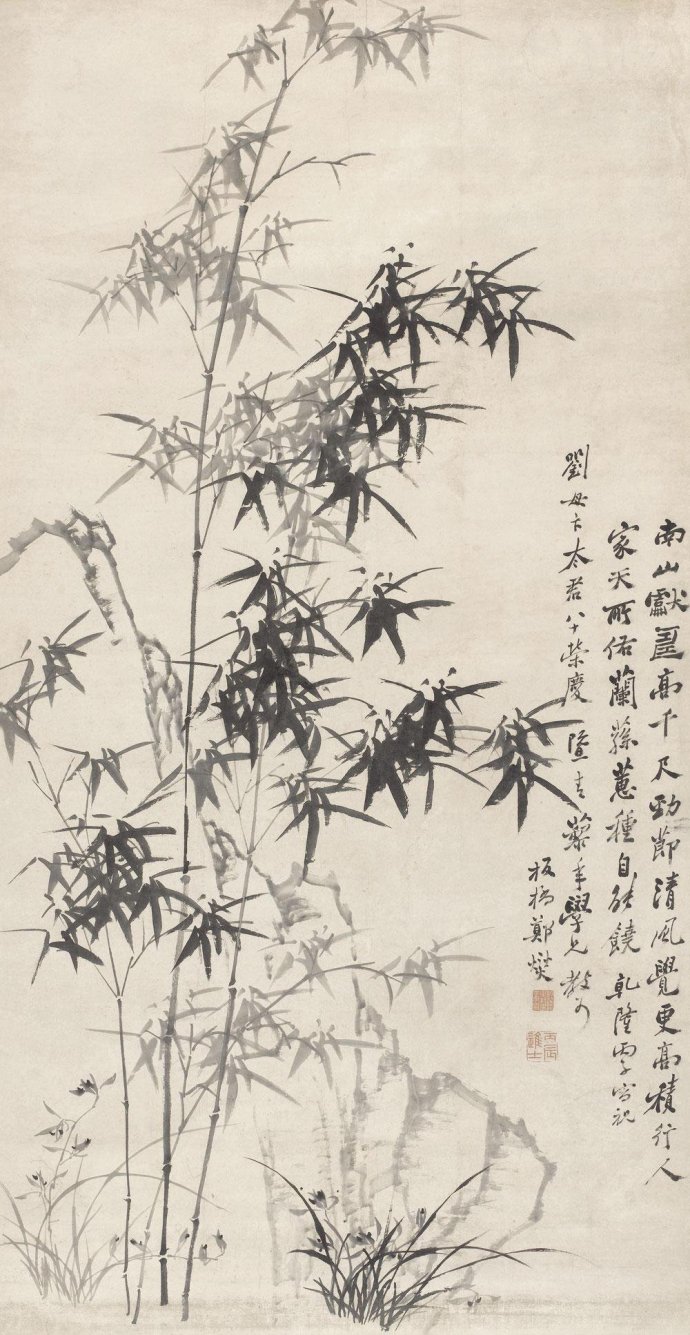 南山獻壽高千尺勁節清風覺更高積行人
家天所佑蘭蓀蕙種自能饒 乾隆丙子寫祝
劉母卞太君八十榮慶 暨 青藜年學兄教可
板橋鄭燮
丙辰進士